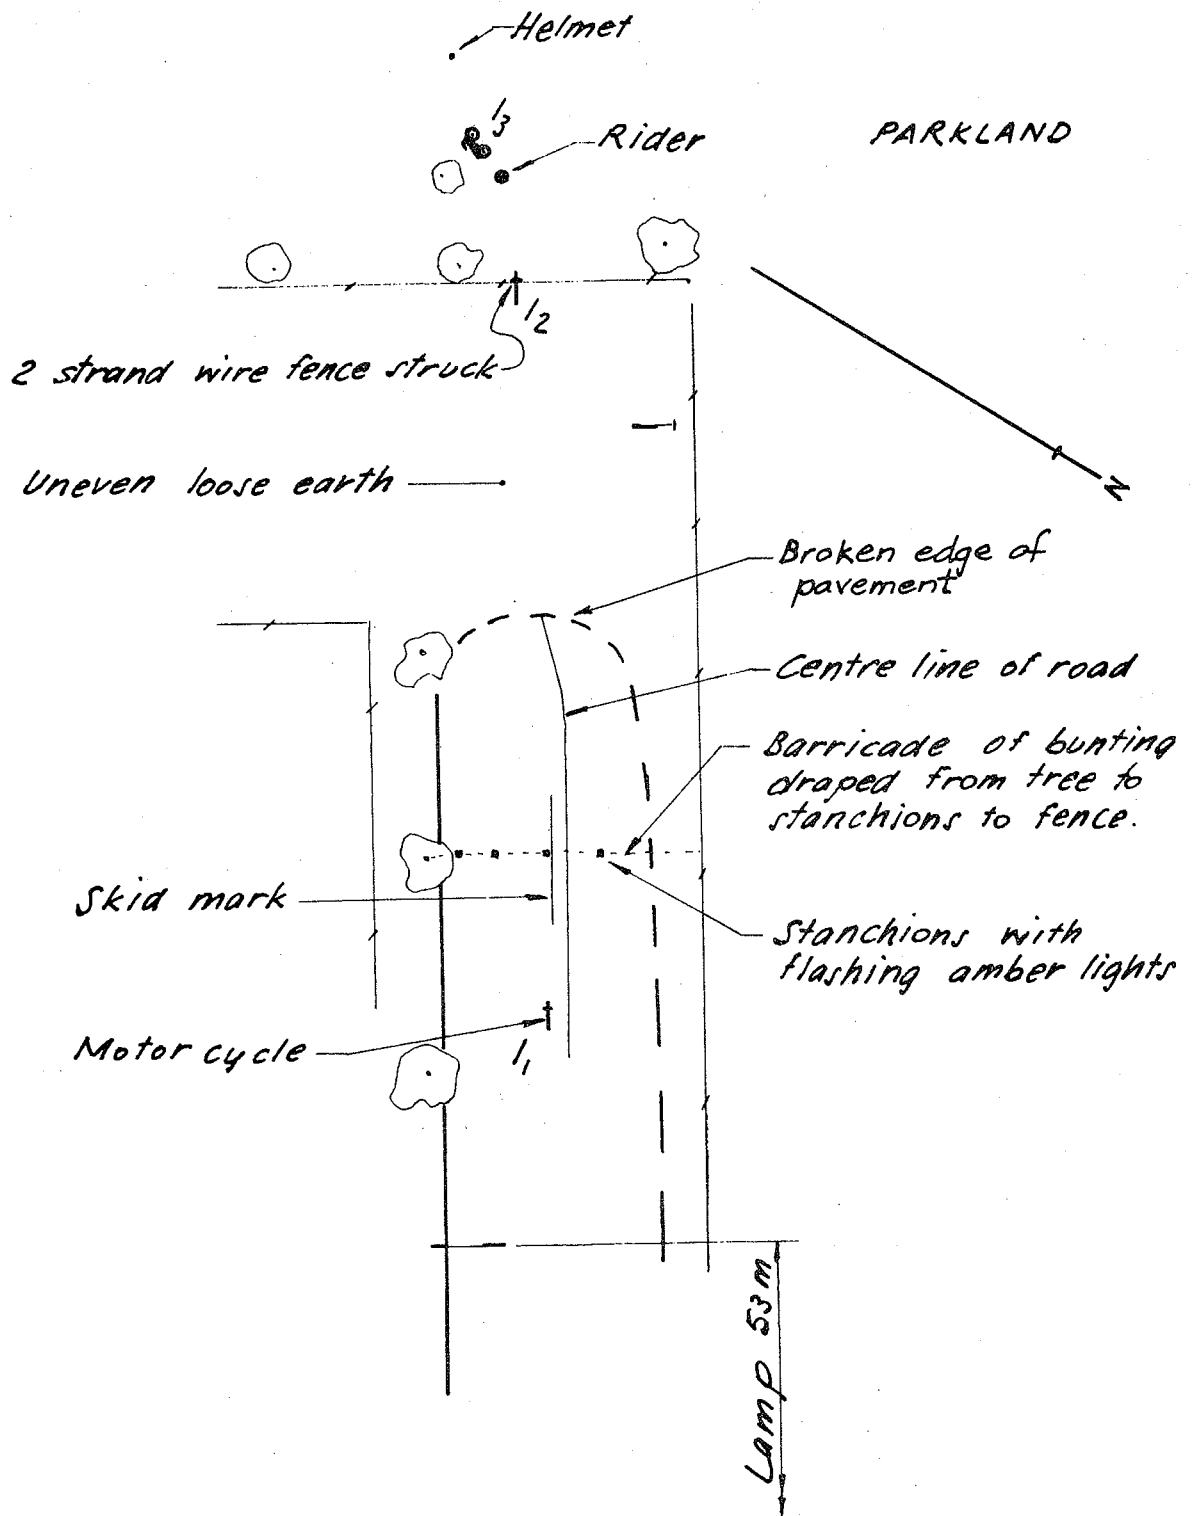 Helmet
1₃
Rider
PARKLAND
1₂
2 strand wire fence struck
Uneven loose earth
N
Broken edge of
pavement
Centre line of road
Barricade of bunting
draped from tree to
stanchions to fence.
Skid mark
Stanchions with
flashing amber lights
Motor cycle
1₁
Lamp 53m